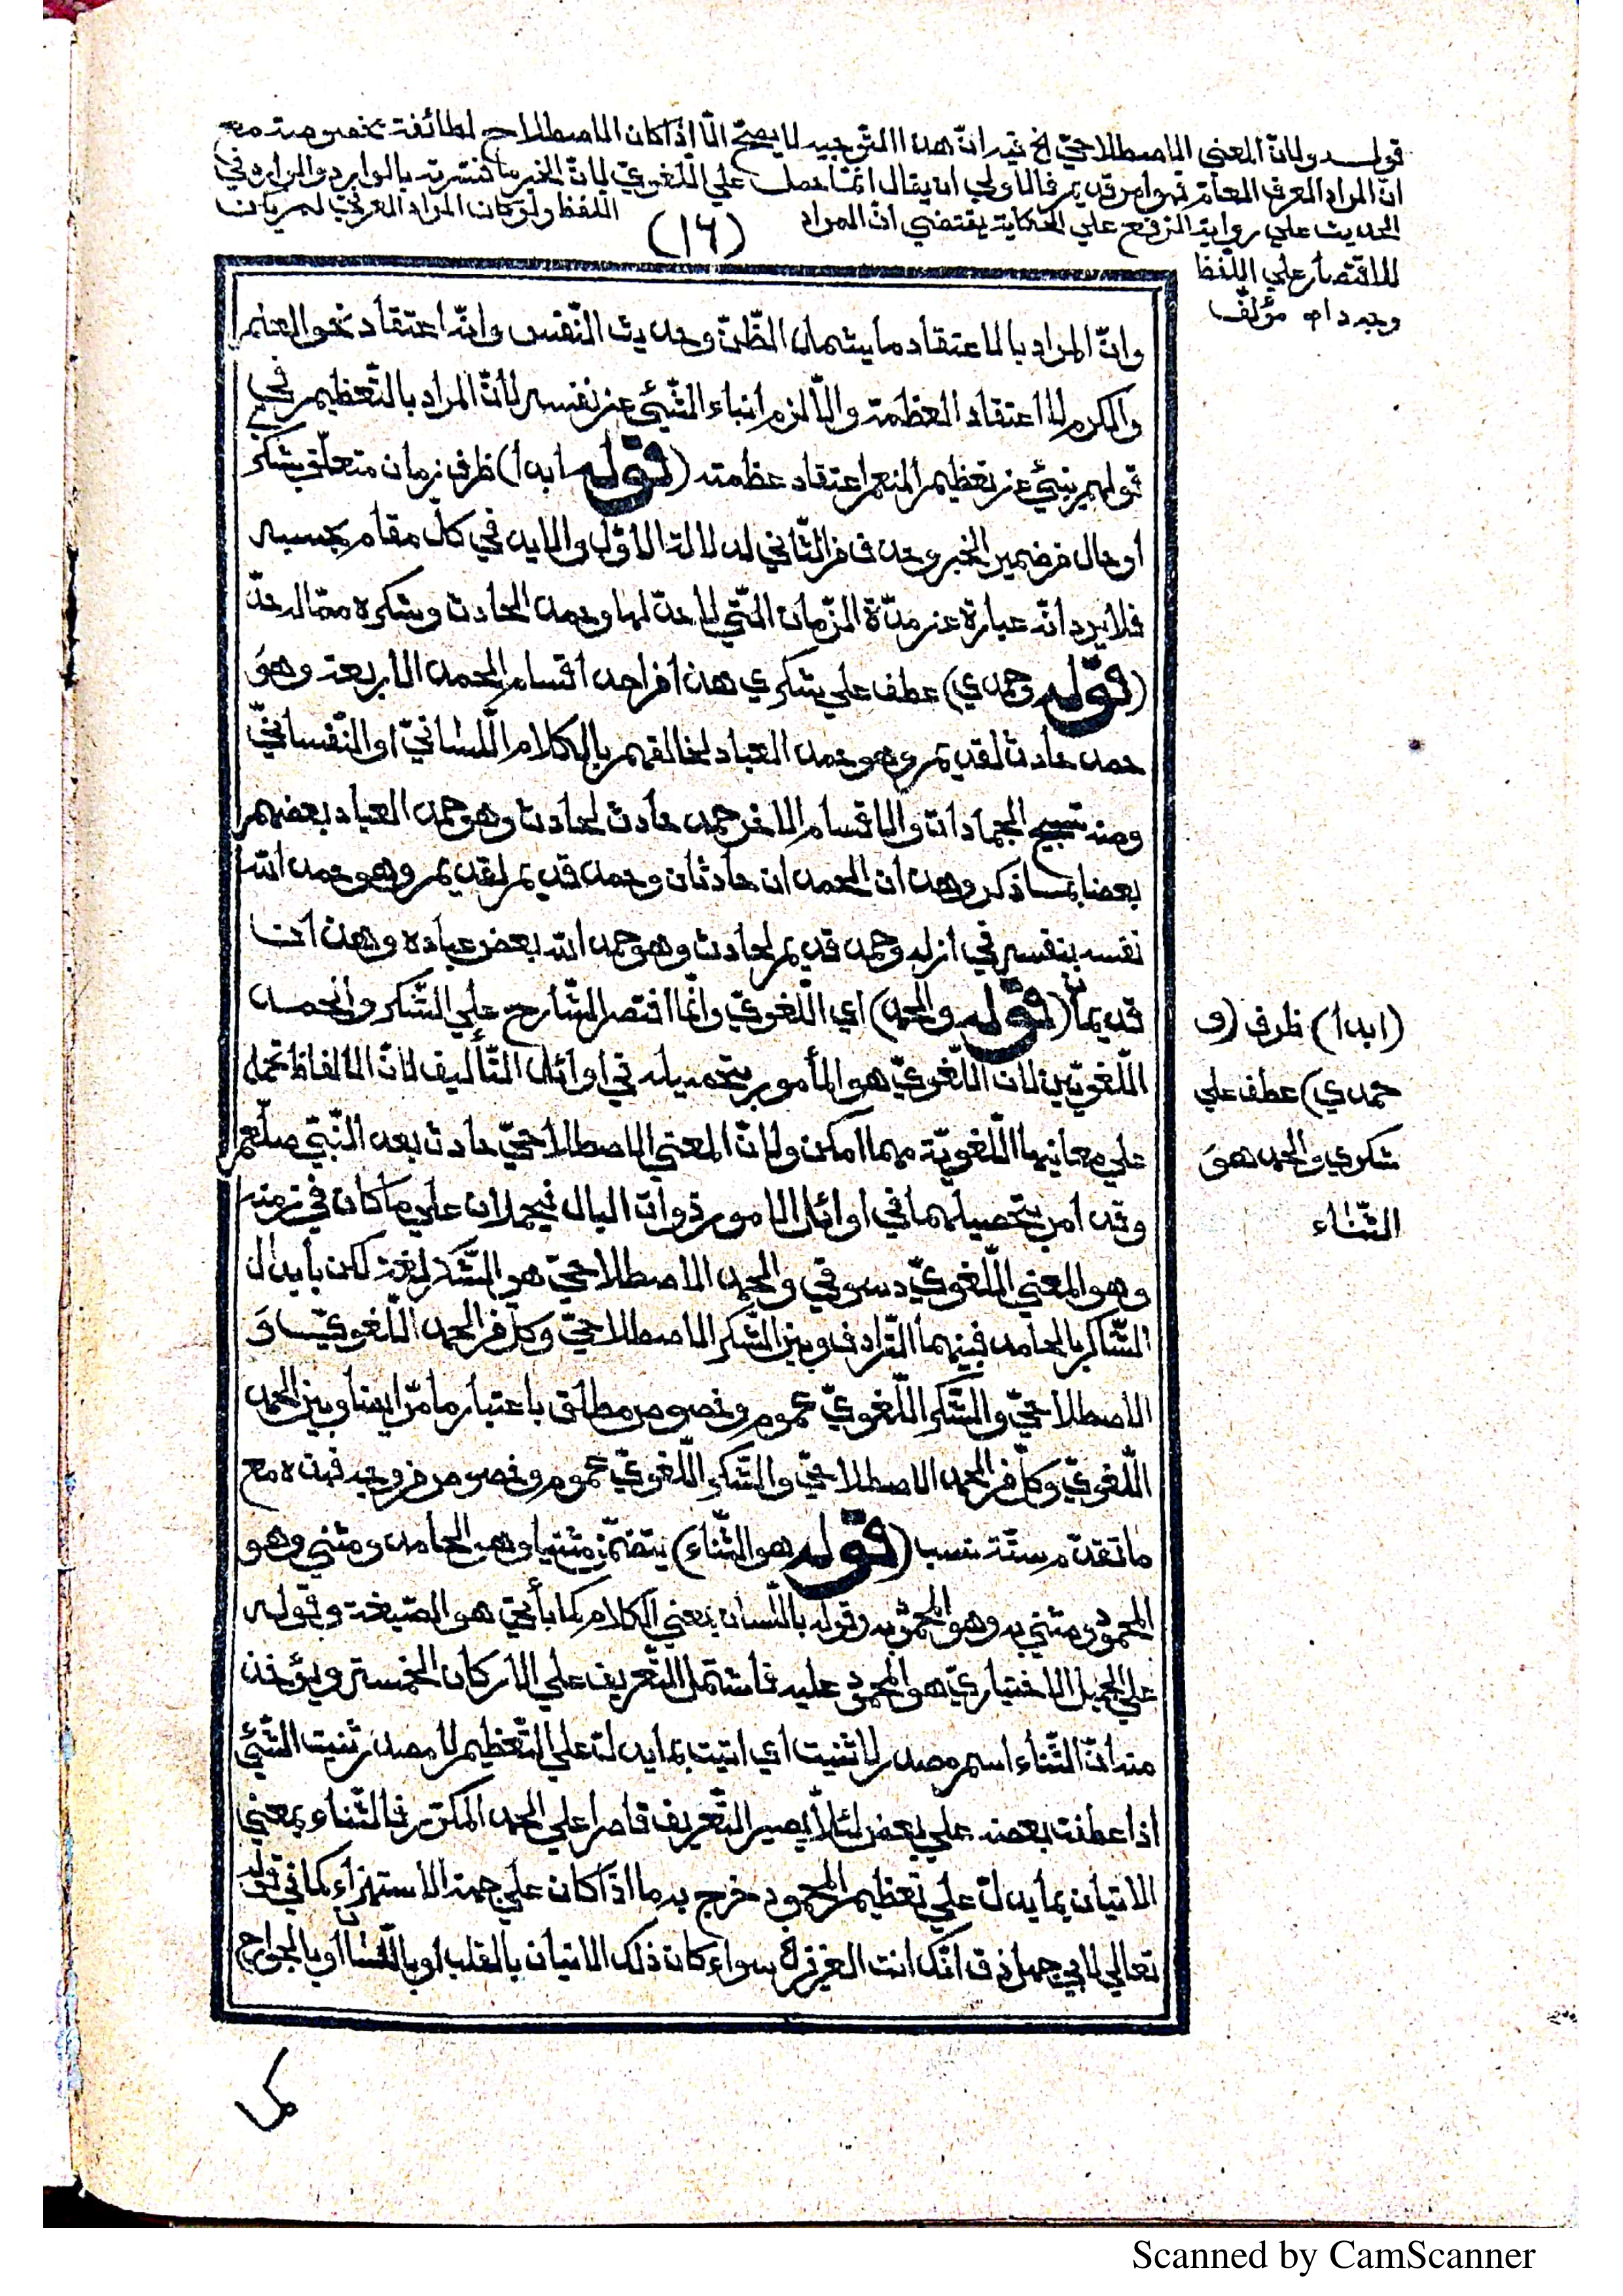 قوله ولانّ المعني الاصطلاحيّ الخ فيه انّ هذا التوجيه لا يصحّ الّا اذا كان الاصطلاح لطائفة مخصوصة مع
انّ المراد العرف العام فهو امر قديم فالاولي ان يقال انّما حمل علي اللّغويّ لانّ الخير ما فسّرته بالوارد والوارد في
الحديث علي رواية الرّفع علي الحكاية يقتضي انّ المراد اللّفظ ولو كان المراد العرفيّ لم يكن
للاقتصار علي اللّفظ
وجه اه مؤلّف
(١٦)
وانّ المراد بالاعتقاد ما يشمل الظّنّ وحديث النّفس وانّه اعتقاد نحو العلم
والكرم لا اعتقاد العظمة والّا لزم انباء الشّيئ عن نفسه لانّ المراد بالتّعظيم في
قولهم ينبئ عن تعظيم المنعم اعتقاد عظمته (قوله ابدا) ظرف زمان متعلّق بشكر
او حال من ضمير الخبر وحذف من الثّاني لدلالة الاوّل والابد في كلّ مقام بحسبه
فلا يرد انّه عبارة عن مدّة الزّمان الّتي لا حدّ لها وحمد الحادث وشكره ممّا له حدّ
(قوله وحمدي) عطف علي شكري هذا من احد اقسام الحمد الاربعة وهو
حمد حادث لقديم وهو حمد العباد لخالقهم بالكلام اللّسانيّ او النّفسانيّ
ومنه تسبيح الجمادات والاقسام الاخر حمد حادث لحادث وهو حمد العباد بعضهم
بعضا بما ذكر وهذان الحمدان حادثان وحمد قديم لقديم وهو حمد الله
نفسه بنفسه في ازله وحمد قديم لحادث وهو حمد الله بعض عباده وهذان
قديمان (قوله والحمد) اي اللّغويّ وانّما اقتصر الشّارح علي الشّكر والحمد
اللّغويّين لانّ اللّغويّ هو المأمور بتحصيله في اوائل التّأليف لانّ الالفاظ تحمل
علي معانيها اللّغويّة مهما امكن ولانّ المعني الاصطلاحيّ حادث بعد النّبيّ صلّعم
وقد امر بتحصيلهما في اوائل الامور ذوات البال فيحملان علي ما كان في زمنه
وهو المعني اللّغويّ دسوقي والحمد الاصطلاحيّ هو الشّكر لغة لكن بابدال
الشّاكر بالحامد فبينهما التّرادف وبين الشّكر الاصطلاحيّ وكلّ من الحمد اللّغويّ و
الاصطلاحيّ والشّكر اللّغويّ عموم وخصوص مطلق باعتبار ما مرّ ايضا وبين الحمد
اللّغويّ وكلّ من الحمد الاصطلاحيّ والشّكر اللّغويّ عموم وخصوص من وجه فهذه مع
ما تقدّم ستّة نسب (قوله هو الثّناء) يتضمّن مثنيا وهو الحامد ومثني وهو
المحمود ومثني به وهو المحمود به وقوله باللّسان يعني الكلام كما يأتي هو الصّيغة وقوله
علي الجميل الاختياريّ هو المحمود عليه فاشتمل التّعريف علي الاركان الخمسة ويؤخذ
منه انّ الثّناء اسم مصدر لاثنيت اي اتيت بما يدلّ علي التّعظيم لا مصدر ثنيت الشّيئ
اذا عطفت بعضه علي بعض لئلّا يصير التّعريف قاصرا علي الحمد المكرّر فالثّناء بمعني
الاتيان بما يدلّ علي تعظيم المحمود خرج به ما اذا كان علي جهة الاستهزاء كما في قوله
تعالي لابي جهل ذق انّك انت العزيز سواء كان ذلك الاتيان بالقلب او باللّسان او بالجوارح
(ابدا) ظرف (و
حمدي) عطف علي
شكري والحمد هو
الثّناء